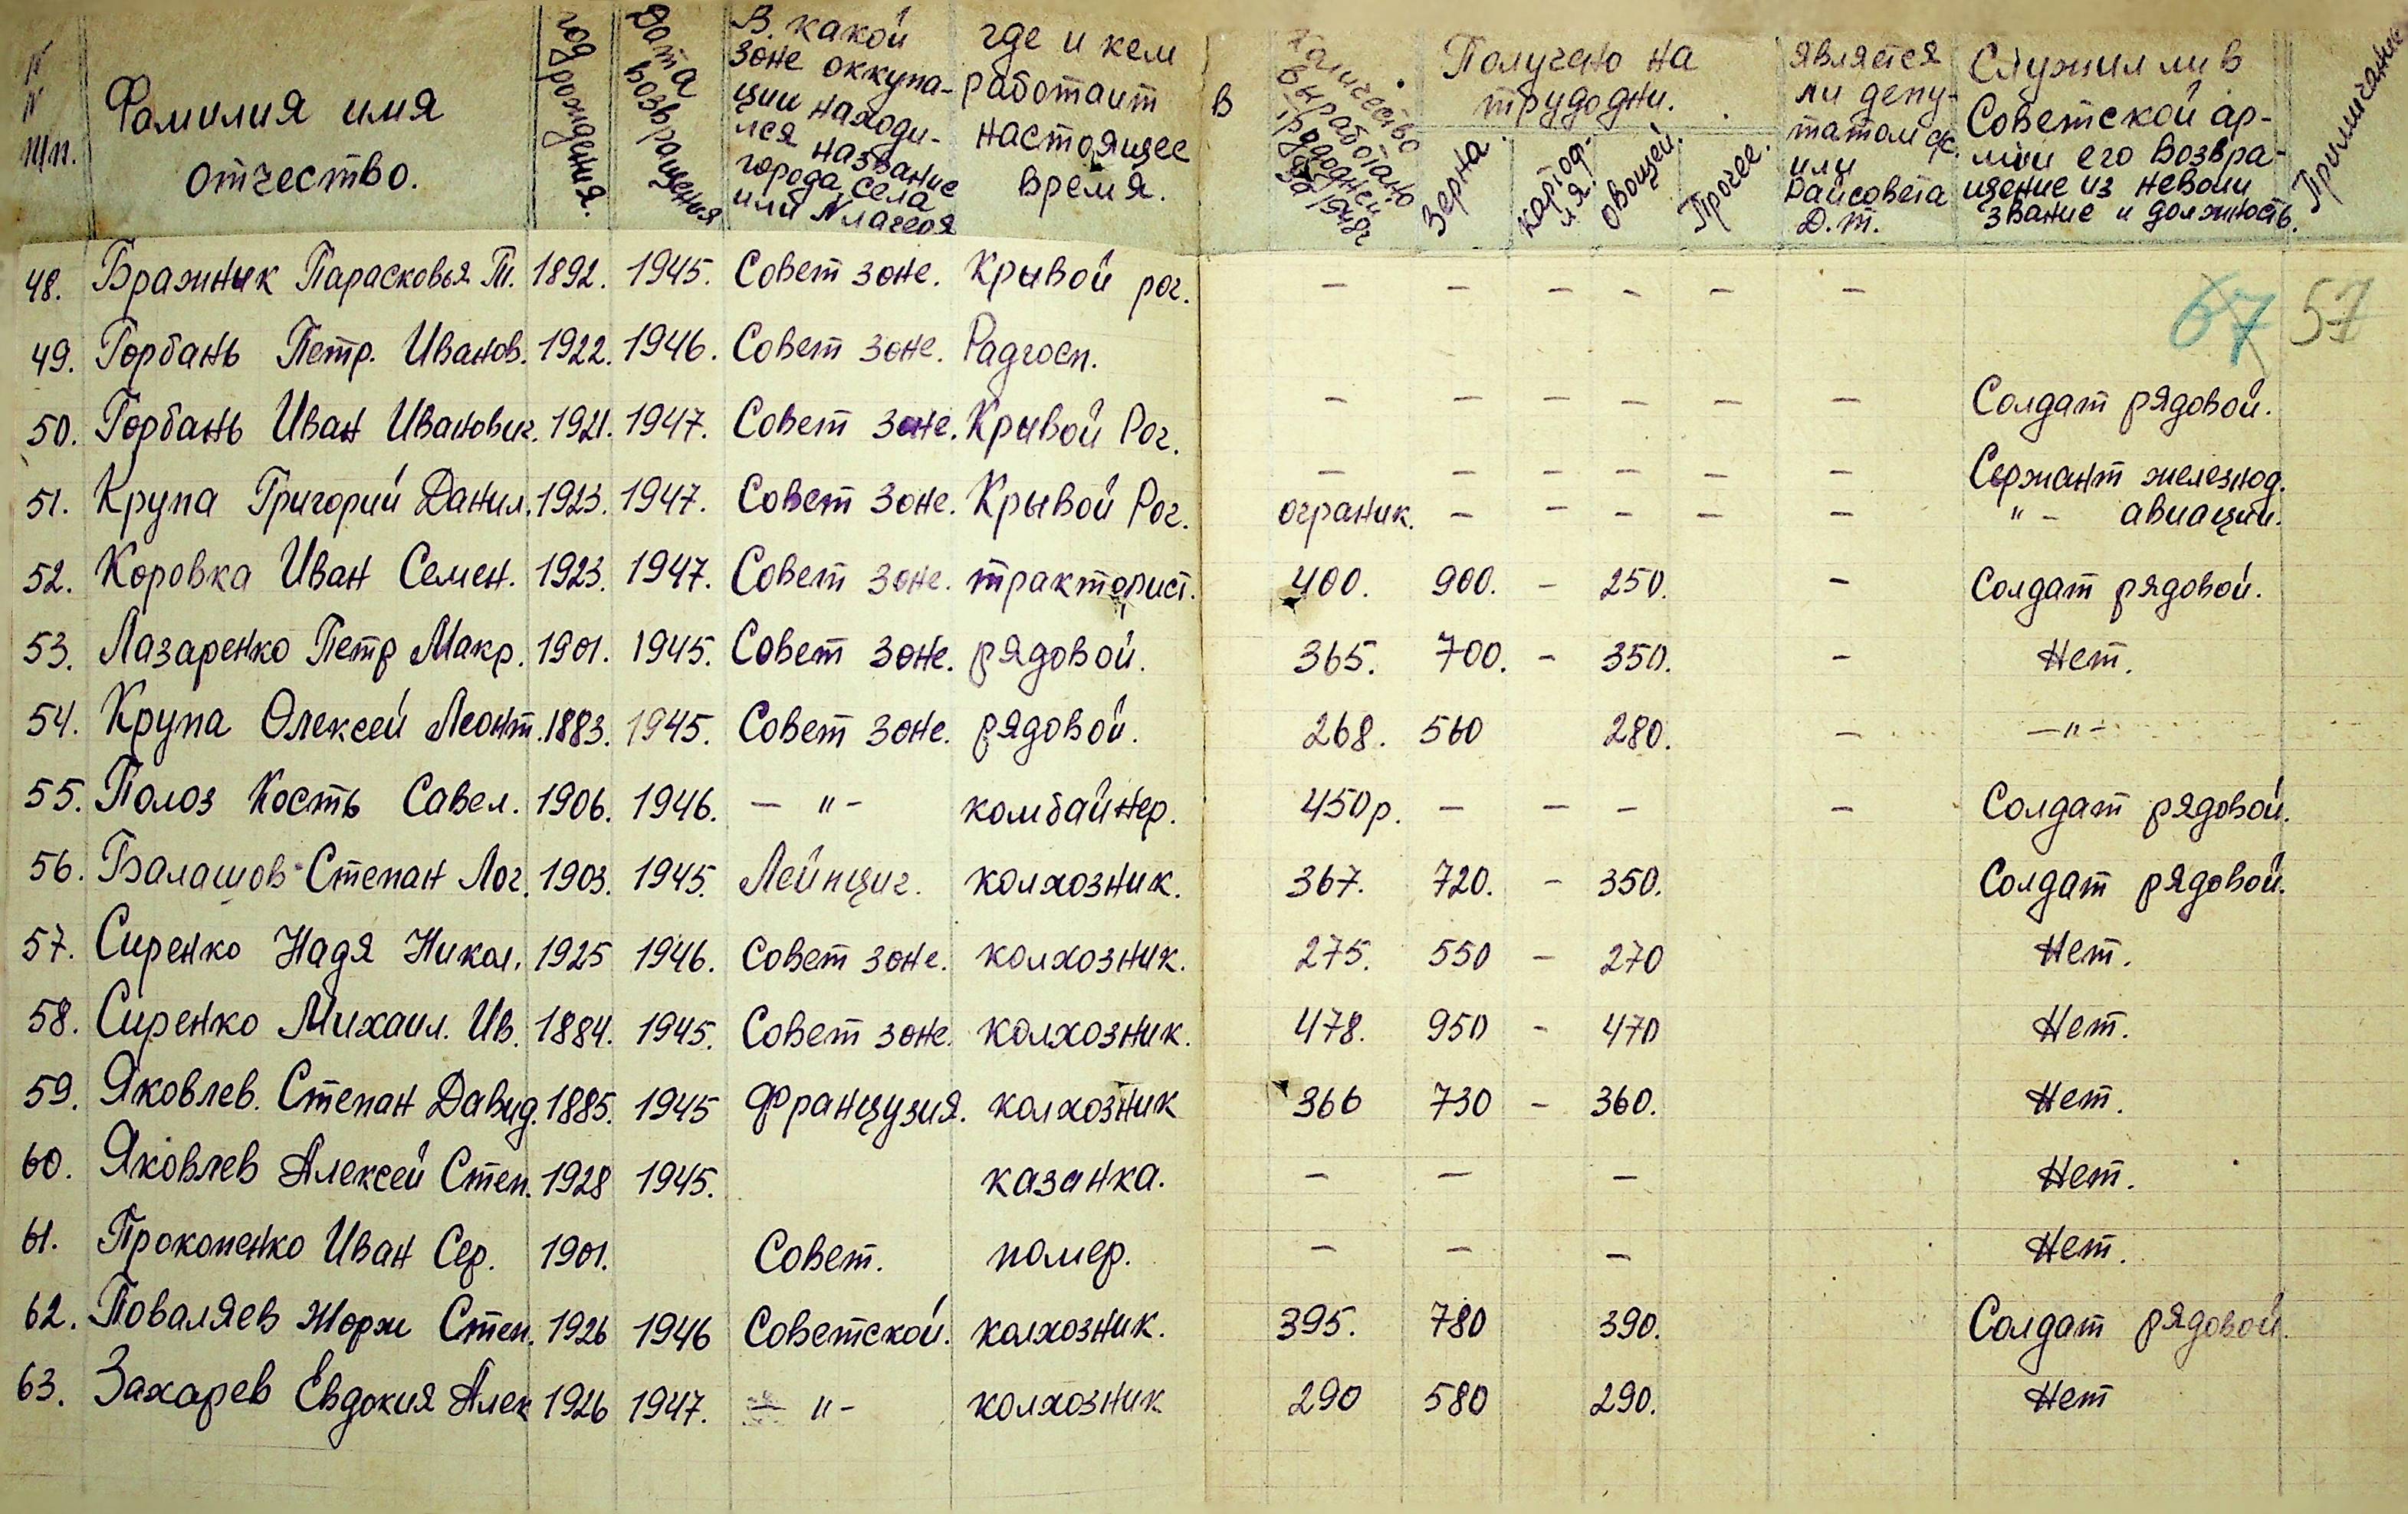 N N п/п. | Фамилия имя отчество. | год рождения. | Дата возвращения | В какой зоне оккупации находился название города, села или N лагеря | где и кем работает в настоящее время. | Количество выработано трудодней за | Получено на трудодни. | Зерна. | картофля. | овощей. | Прочее. | Является ли депутатом с/с. или Райсовета Д.т. | Служил ли в Советской армии его возвращение из неволи звание и должность. | Примичание
48. Бражник Парасковья П. 1892. 1945. Совет зоне. Кривой рог. – – – – – –
67 57
49. Горбань Петр. Иванов. 1922. 1946. Совет зоне. Радгосп. – – – – – – Солдат рядовой.
50. Горбань Иван Иванович. 1921. 1947. Совет зоне. Крывой Рог. – – – – – – Сержант железнод.
51. Крупа Григорий Данил. 1923. 1947. Совет зоне. Крывой Рог. ограник. – – – – – " – авиации.
52. Коровка Иван Семен. 1923. 1947. Совет зоне. тракторист. 400. 900. – 250. – Солдат рядовой.
53. Лазаренко Петр Макр. 1901. 1945. Совет зоне. рядовой. 365. 700. – 350. – Нет.
54. Крупа Олексей Леонт. 1883. 1945. Совет зоне. рядовой. 268. 560 280. – – " –
55. Полоз Кость Савел. 1906. 1946. – " – комбайнер. 450р. – – – – Солдат рядовой.
56. Балашов Степан Лог. 1903. 1945. Лейпциг. колхозник. 367. 720. – 350. Солдат рядовой.
57. Сиренко Надя Никол. 1925 1946. Совет зоне. колхозник. 275. 550 – 270 Нет.
58. Сиренко Михаил. Ив. 1884. 1945. Совет зоне. колхозник. 478. 950 – 470 Нет.
59. Яковлев. Степан Давид. 1885. 1945 Французия. колхозник 366 730 – 360. Нет.
60. Яковлев Алексей Степ. 1928 1945. казанка. – – – Нет.
61. Прокопенко Иван Сер. 1901. Совет. помер. – – – Нет.
62. Поваляев Жорж Степ. 1926 1946 Советской. колхозник. 395. 780 390. Солдат рядовой.
63. Захарев Евдокия Алек 1926 1947. – " – колхозник 290 580 290. Нет